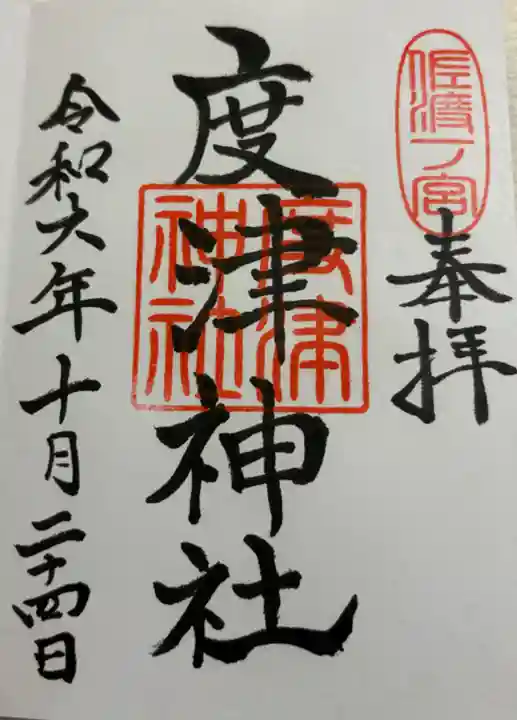 佐渡一ノ宮
奉拝
度津神社
度津神社
令和六年十月二十四日